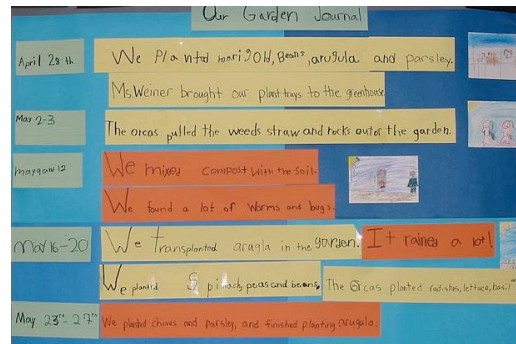 Our Garden Journal
April 28th We Planted marigold, Beans, arugula and parsley.
Ms. Weiner brought our plant trays to the greenhouse.
May 2-3 The orcas pulled the weeds straw and rocks out of the garden.
We mixed compost with the soil.
We found a lot of worms and bugs.
May 16-20 We transplanted arugla in the garden. It rained a lot!
We planted spinach, peas and beans, The Orcas planted radishes, lettuce, basil
May 23rd-27th We planted chives and parsley, and finished planting arugala.